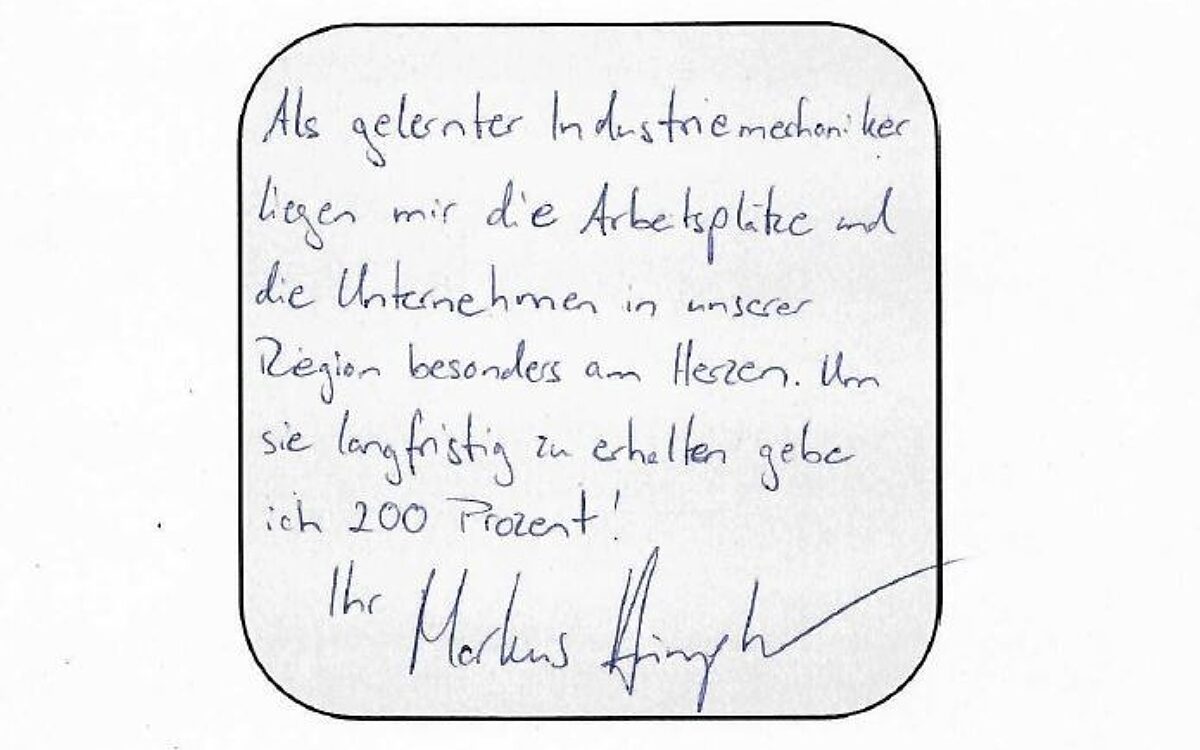 Als gelernter Industriemechaniker
liegen mir die Arbeitsplätze und
die Unternehmen in unserer
Region besonders am Herzen. Um
sie langfristig zu erhalten gebe
ich 200 Prozent!
Ihr Markus